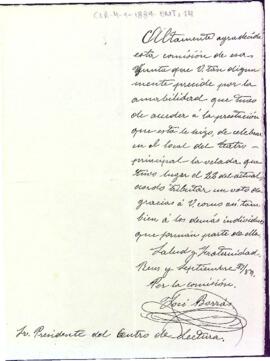 Altamente agradecida
esta comisión de esa
Junta que V. tan digna
mente preside por la
amabilidad que tuvo
de acceder á la
que esta le hizo, de celebrar
en el local del teatro
principal la velada que
tuvo lugar el 22 del actual
acordó tributar un voto de
gracias á V. como asi tam
bien á los demás individuos
que forman parte de ella.
Salud y Fraternidad
Reus y Septiembre
Por la comisión.
José Borrás
Sr. Presidente del Centro de Lectura.